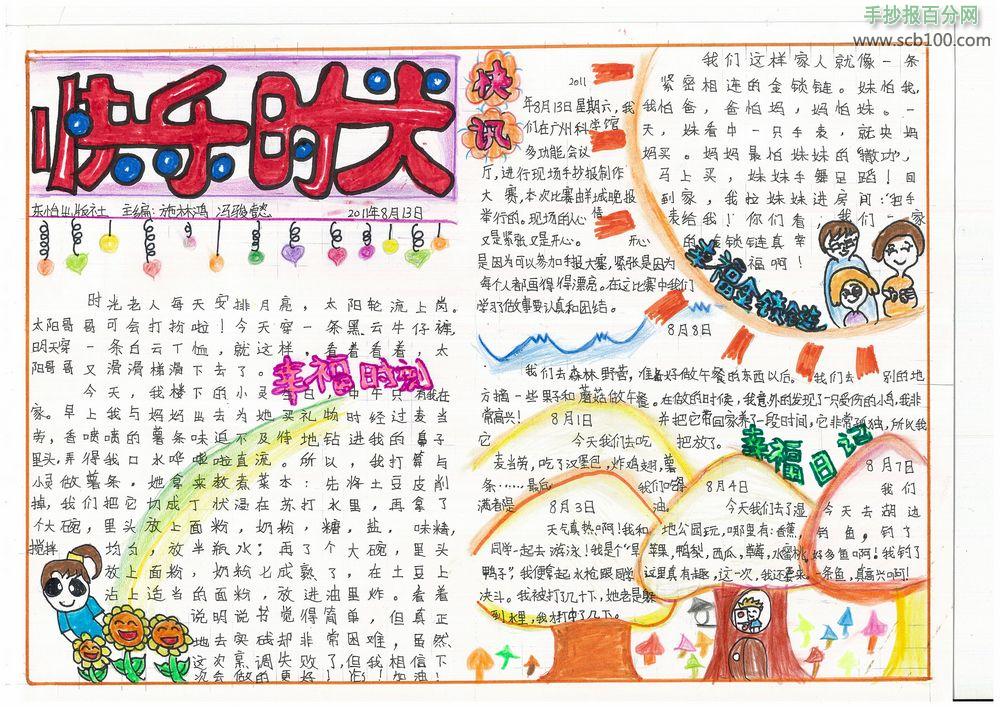 手抄报百分网
www.scb100.com
快乐时光
主编：施林鸿 冯骏懿
2011年8月13日
时光老人每天安排月亮，太阳轮流上岗。
太阳哥哥可会打扮啦！今天穿一条黑云牛仔裤，
明天穿一条白云T恤，就这样，看着看着，太
阳哥哥又滑滑梯滑下去了。
幸福时刻
今天，我楼下的小灵
在
家。早上我与妈妈出去为她买礼物时经过麦当
劳，香喷喷的薯条味迫不及待地钻进我的鼻子
里头，弄得我口水哗啦啦直流。所以，我打算与
小灵做薯条。她拿来教煮菜本：先将土豆皮削
掉，我们把它切成了状浸在苏打水里，再拿了
个大碗，里头放上面粉，奶粉，糖，盐，味精，
搅拌均匀，放半瓶水；再了个大碗，里头
放上面粉，奶粉七成熟了，在土豆上
沾上适当的面粉，放进油里炸。看着
说明说书觉得简单，但真正
地去实践却非常困难，虽然
这次烹调失败了，但我相信下
次会做的更好！加油！
快讯
2011
年8月13日星期六，我
们在广州科学馆
多功能会议
厅，进行现场手抄报制作
大赛，本次比赛由羊城晚报
举行的。现场的心情
又是紧张又是开心。开心
是因为可以参加手报大赛，紧张是因为
每个人都画得得漂亮。在这比赛中我们
学习了做事要认真和团结。
我们这样家人就像一条
紧密相连的金锁链。妹怕我，
我怕爸，爸怕妈，妈怕妹。一
天，妹看中一只手表，就央妈
妈买。妈妈最怕妹妹的“撒功”，
马上买，妹妹手舞足蹈！回
到家，我拉妹妹进房间：“把手
表给我！你们看，我们一家
的金锁链真幸
福啊！
幸福金锁链
8月8日
我们去森林野营，准备好做午餐的东西以后。我们去别的地
方摘一些果子和蘑菇做午餐。在做的时候，我意外的发现了一只受伤的小鸟，我非
常高兴！
并把它带回家养了一段时间，它非常孤独，所以我
把它放了。
幸福日记
8月1日
今天我们去吃
麦当劳，吃了汉堡包，炸鸡翅，薯
条……最后我们吃得
满嘴是油。
8月3日
天气真热啊！我和
同学一起去游泳！我是个“旱
鸭子”，我便拿起水枪跟同学
决斗。我被打了几十下，她老是躲
到水里，我才打中了几下。
8月4日
今天我们去了湿
地公园玩，哪里有：香蕉，
苹果，鸭梨，西瓜，草莓，水蜜桃，
这里真有趣，这一次，我还要来。
8月7日
我们
今天去胡边
钓鱼，钓了
好多鱼啊！我钓了
一条鱼，真高兴啊！